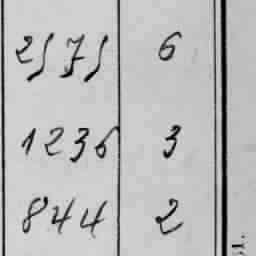 2575 6
1236 3
844 2